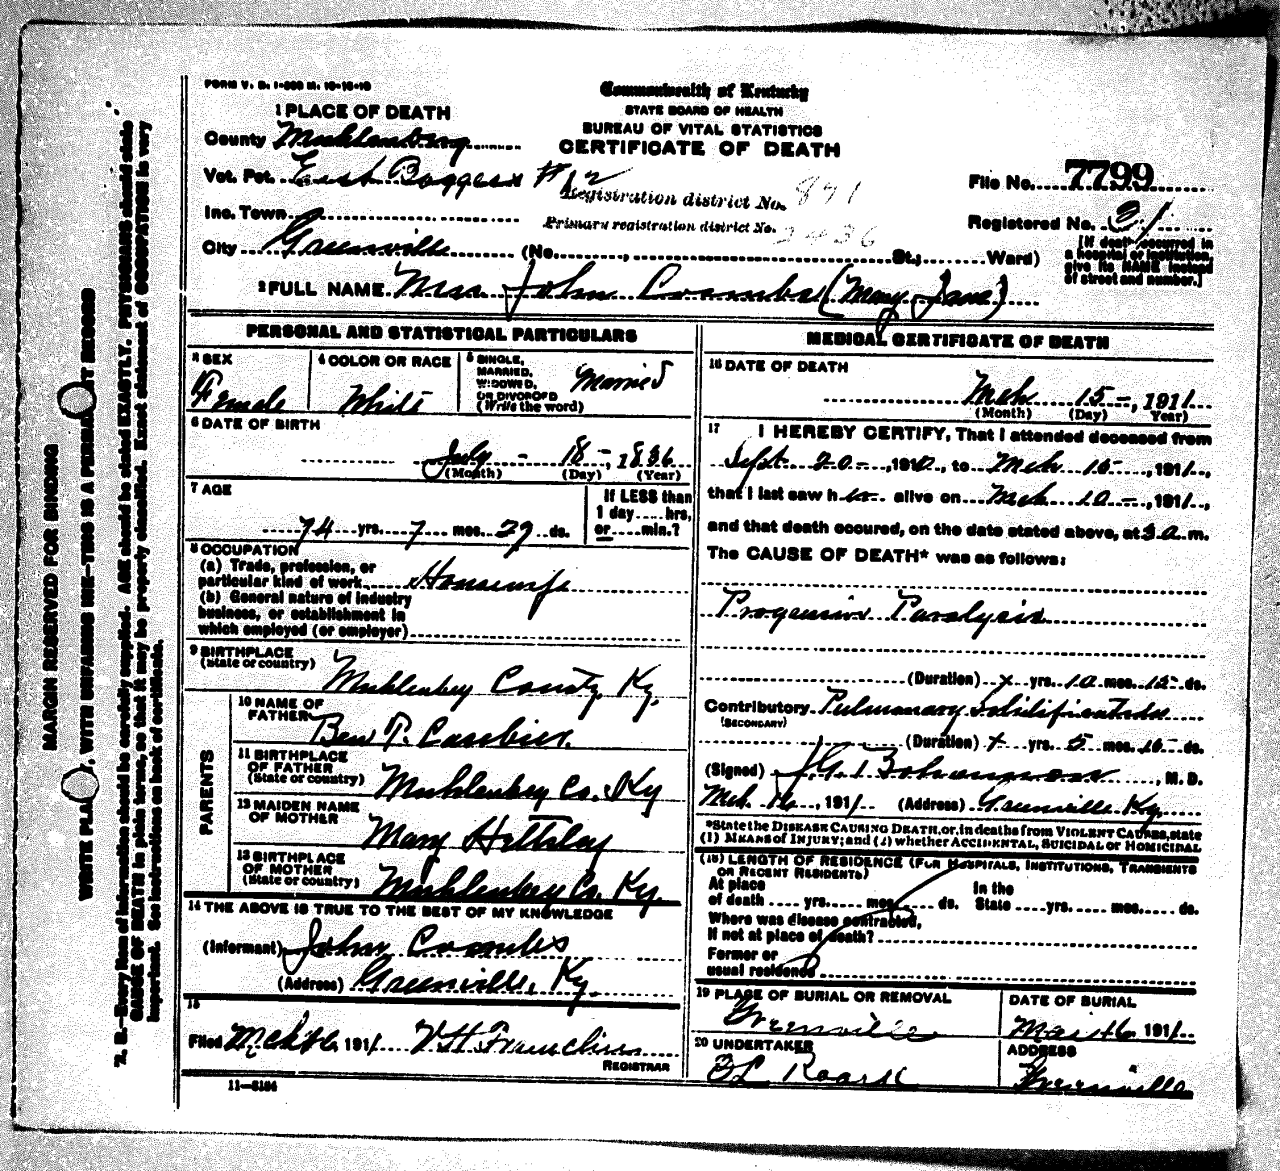 FORM V. S. 1-500 M. 10-15-10
Commonwealth of Kentucky
STATE BOARD OF HEALTH
BUREAU OF VITAL STATISTICS
CERTIFICATE OF DEATH
1 PLACE OF DEATH
County Muhlenburg
Vot. Pct. East Boggess #12
Inc. Town
City Greenville (No. , St.; Ward)
Registration district No. 871
Primary registration district No. 2436
File No. 7799
Registered No. 31
[If death occurred in a hospital or institution, give its NAME instead of street and number.]
2 FULL NAME Mrs John Coombs (Mary Jane)
PERSONAL AND STATISTICAL PARTICULARS
3 SEX Female
4 COLOR OR RACE White
5 SINGLE, MARRIED, WIDOWED, OR DIVORCED (Write the word) Married
6 DATE OF BIRTH
July - 18 -, 1836
(Month) (Day) (Year)
7 AGE
74 yrs. 7 mos. 29 ds.
If LESS than 1 day .... hrs, or .... min.?
8 OCCUPATION
(a) Trade, profession, or particular kind of work Housewife
(b) General nature of industry business, or establishment in which employed (or employer)
9 BIRTHPLACE (State or country) Muhlenbeg County Ky.
PARENTS
10 NAME OF FATHER Ben T.
11 BIRTHPLACE OF FATHER (State or country) Muhlenbeg Co. Ky
12 MAIDEN NAME OF MOTHER Mary
13 BIRTHPLACE OF MOTHER (State or country) Muhlenbeg Co. Ky.
14 THE ABOVE IS TRUE TO THE BEST OF MY KNOWLEDGE
(Informant) John Coombs
(Address) Greenville, Ky.
15
Filed Mch 16 1911
REGISTRAR
11-5184
MEDICAL CERTIFICATE OF DEATH
16 DATE OF DEATH
Mch 15 -, 1911
(Month) (Day) Year)
17 I HEREBY CERTIFY, That I attended deceased from
Sept 20 -, 1910, to Mch 15 -, 1911,
that I last saw her alive on Mch 10 -, 1911,
and that death occured, on the date stated above, at 3 a.m.
The CAUSE OF DEATH* was as follows:
Progressive Paralysis
(Duration) x yrs. 10 mos. 12 ds.
Contributory Pulmonary
(SECONDARY)
(Duration) x yrs. 5 mos. 10 ds.
(Signed) J.G. , M. D.
Mch. 16, 1911 (Address) Greenville Ky.
*State the DISEASE CAUSING DEATH, or, in deaths from VIOLENT CAUSES, state
(1) MEANS of INJURY; and (2) whether ACCIDENTAL, SUICIDAL or HOMICIDAL
(18) LENGTH OF RESIDENCE (FOR HOSPITALS, INSTITUTIONS, TRANSIENTS
OR RECENT RESIDENTS)
At place of death .... yrs. .... mos. .... ds. In the State .... yrs. .... mos. .... ds.
Where was disease contracted, If not at place of death?
Former or usual residence
19 PLACE OF BURIAL OR REMOVAL Greenville
DATE OF BURIAL Mar 16 1911
20 UNDERTAKER Roark
ADDRESS Greenville
MARGIN RESERVED FOR BINDING
WRITE PLAINLY, WITH UNFADING INK-THIS IS A PERMANENT RECORD
N. B.-Every item of information should be carefully supplied. AGE should be stated EXACTLY. PHYSICIANS should state
CAUSE OF DEATH in plain terms, so that it may be properly classified. Exact statement of OCCUPATION is very
important. See instructions on back of certificate.